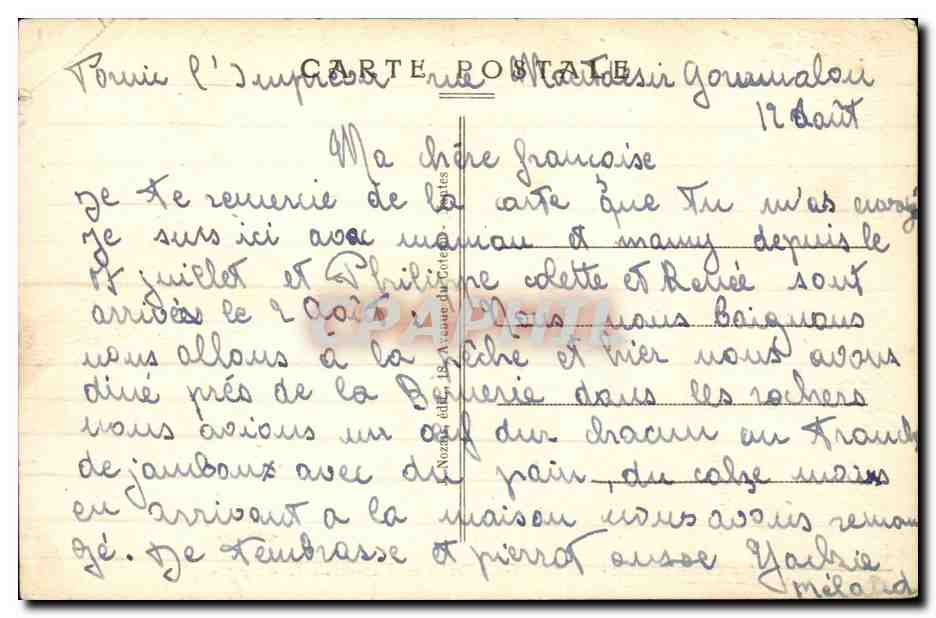 CARTE POSTALE
Pornic l'Imprévu rue Mondésir Gourmalon
12 Août
Ma chère françoise
Je te remercie de la carte que tu m'as
Je suis ici avec maman et mamy depuis le
15 juillet et Philippe colette et Renée sont
arrivés le 2 Août. Nous nous baignons
nous allons a la pêche et hier nous avons
diné près de la dans les rochers
nous avions un œuf dur chacun un
de jambonz avec du pain, du mais
en arrivant a la maison nous avons reman
gé. Je t'embrasse et pierrot ausse
Nozais, édit., 18, Avenue du Coteau - Nantes
CPAPHIL